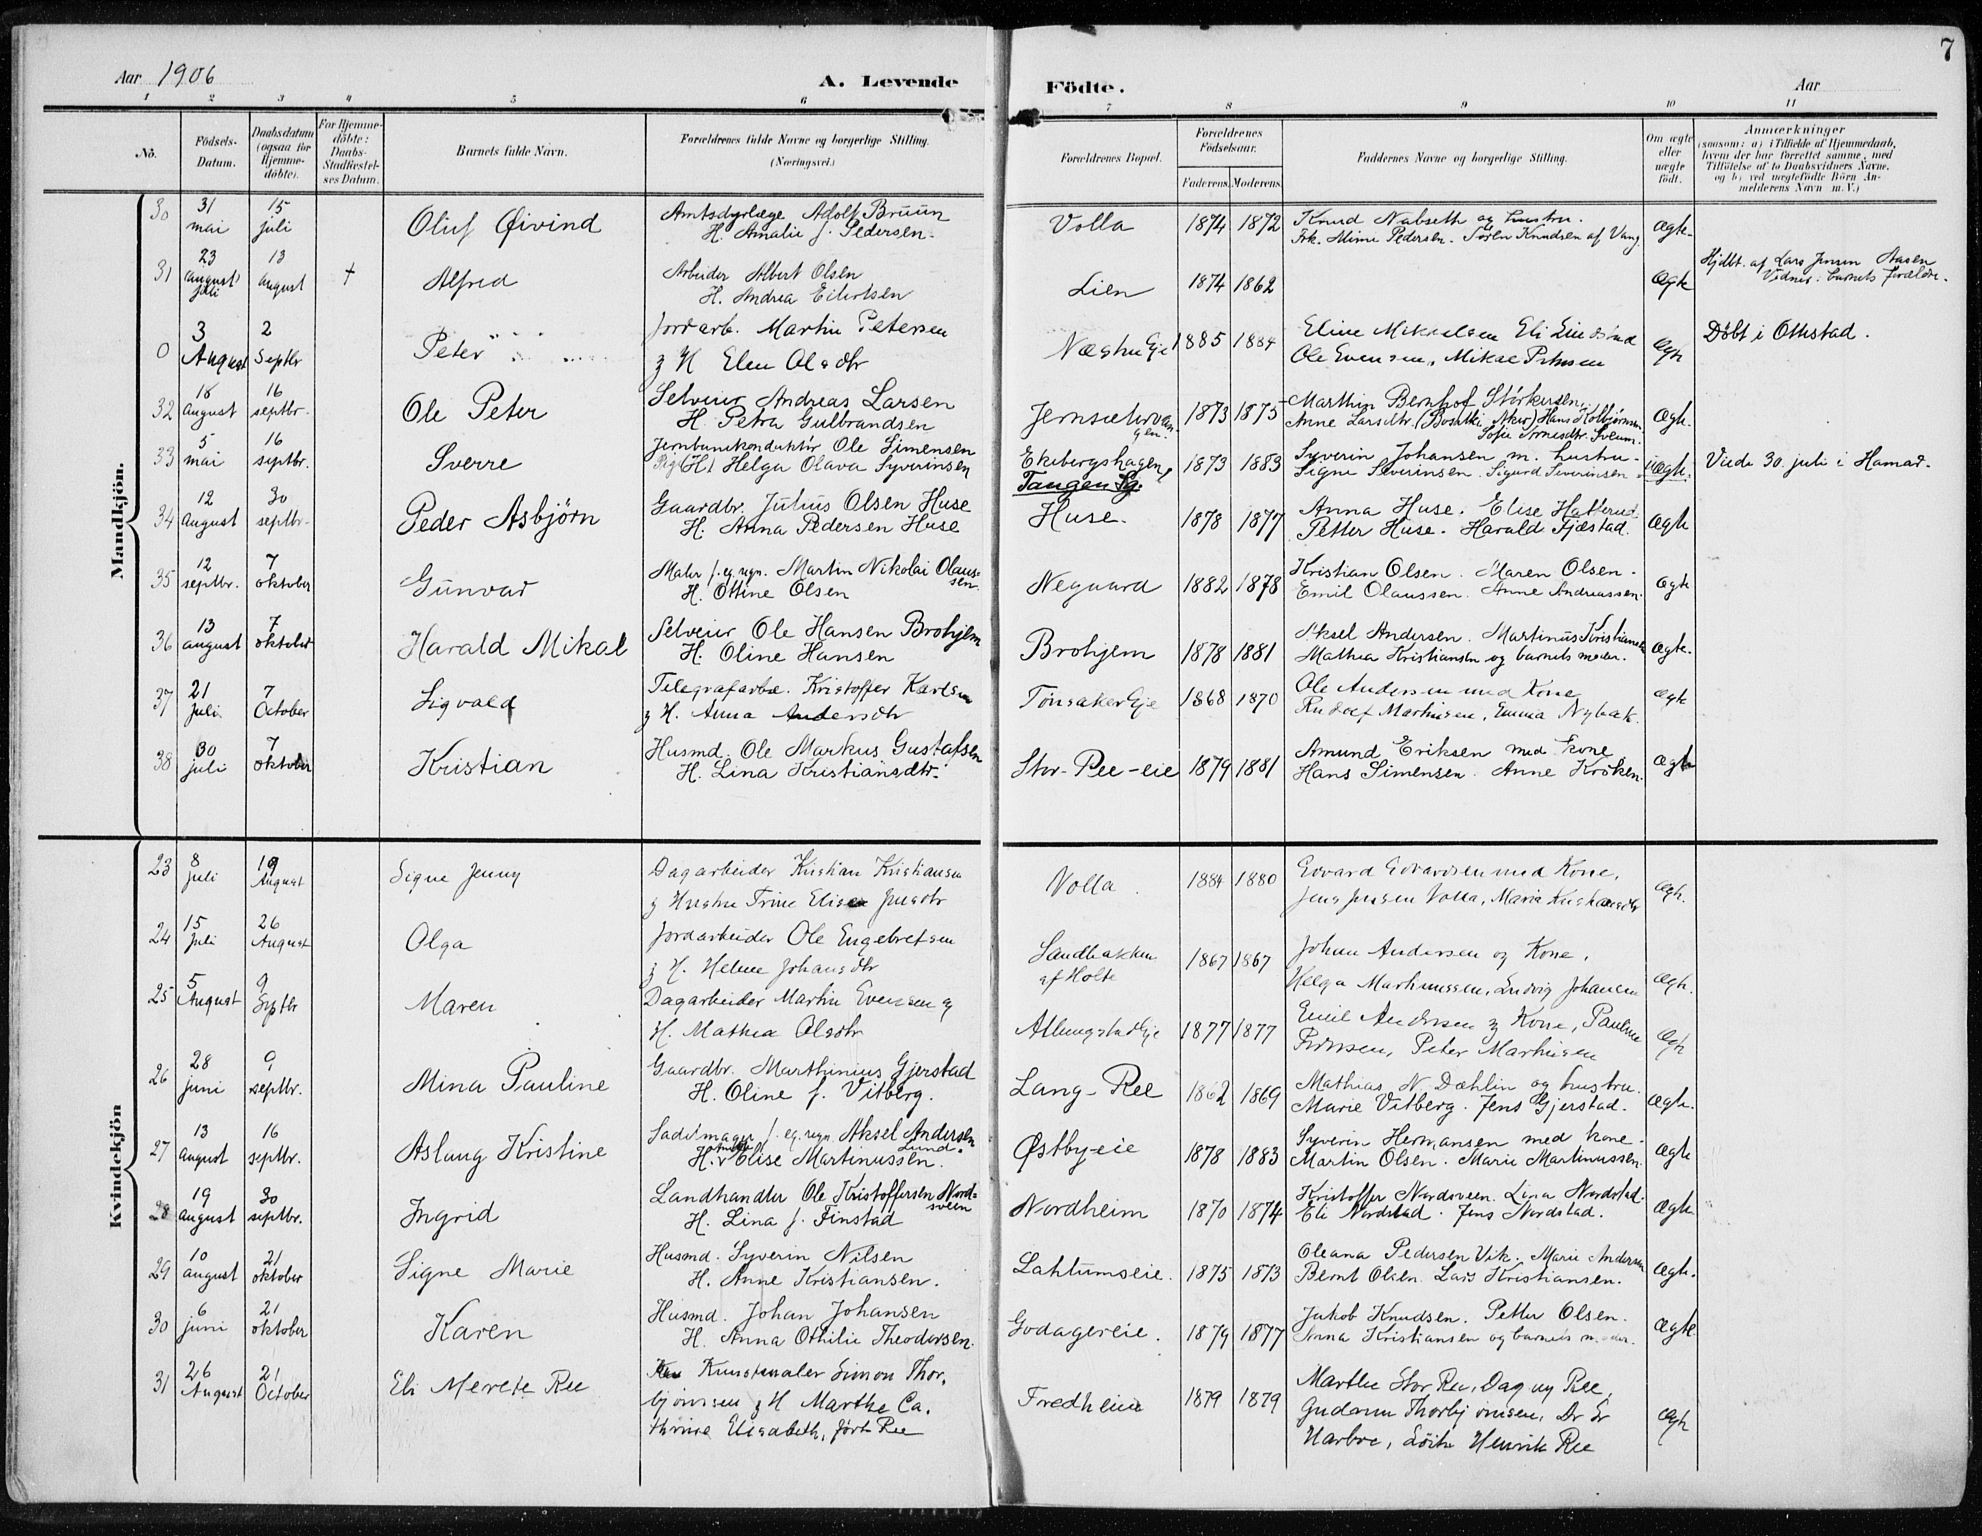 7
Aar 1906
A. Levende Födte.
Aar
1 2 3 4 5 6 7 8 9 10 11
No.
Födsels-Datum.
Daabsdatum (ogsaa for Hjemme-döbte).
For Hjemme-döbte: Daabs-Stadfæstel-ses Datum.
Barnets fulde Navn.
Forældrenes fulde Navne og borgerlige Stilling. (Næringsvei.)
Forældrenes Bopæl.
Forældrenes Födselsaar.
Faderens. Moderens.
Faddernes Navne og borgerlige Stilling.
Om ægte eller uægte födt.
Anmærkninger
(saasom: a) i Tilfælde af Hjemmedaab,
hvem der har forrettet samme, med
Tilföielse af to Daabsvidners Navne,
og b) ved uægtefödte Börn An-
melderens Navn m. V.)
Mandkjön.
30 31 mai 15 juli Oluf Øivind Amtsdyrlæge Adolf Bruun
H. Amalie f. Pedersen. Volla 1874 1872 Knud Nabseth og hustru.
Frk. Mimi Pedersen. Søren Knudsen af Vang. Ægte.
31 23 august juli 13 august + Alfred Arbeider Albert Olsen
H. Andrea Eilertsen Lien 1874 1862 Ægte Hjdbt. af Lars Jensen Aasen
Vidner: barnets forældre.
0 3 August 2 Septbr Peter Jordarb. Martin Petersen
og H Elen Olsdtr 1885 1884 Eline Mikkelsen Eli
Ole Evensen, Mikael Petersen Ægte Døbt i Ottestad.
32 18 august 16 septbr. Ole Peter Selveier Andreas Larsen
H. Petra Gulbrandsen Jernsætervangen. 1873 1875 Marthin Bernhof Størkersen.
Anne Larsdtr. (Bosatte Aker) Hans Kolbjørnsen
Sofie Arnesdtr. Sveum. Ægte.
33 5 mai 16 septbr. Sverre Jernbanekonduktør Ole Simensen
Pige (H) Helga Olava Syverinsen Ekebergshagen
Tangen Sg. 1873 1883 Syverin Johansen m. hustru.
Signe Severinsen. Sigurd Severinsen Uægte. Viede 30. juli i Hamar.
34 12 August 30 septbr. Peder Asbjørn Gaardbr. Julius Olsen Huse
H. Anna Pedersen Huse Huse. 1878 1877 Anna Huse. Elise Hatterud.
Petter Huse. Harald Fjæstad. Ægte
35 12 septbr. 7 oktober Gunvar Maler f. eg. regn. Martin Nikolai Olaussen
H. Ottine Olsen Negaard 1882 1878 Kristian Olsen. Maren Olsen.
Emil Olaussen. Anne Andreassen. Ægte
36 13 august 7 oktober Harald Mikal Selveier Ole Hansen Brohjem
H. Oline Hansen Brohjem 1878 1881 Aksel Andersen. Martinus Kristiansen
Mathea Kristiansen og barnets moder. Ægte.
37 21 Juli 7 October Sigvald Telegrafarbe. Kristoffer Karlsen
og H. Anna Andersdtr Tønsaker Eje 1868 1870 Ole Andersen med Kone
Rudolf Martinsen, Emma Nybak. Ægte
38 30 juli 7 oktober Kristian Husmd. Ole Markus Gustafsen
H. Lina Kristiansdtr. Stor-Ree-eie 1879 1881 Amund Eriksen med kone
Hans Simensen. Anne Krøken. Ægte
Kvindekjön
23 8 juli 19 August Signe Jenny Dagarbeider Kristian Kristiansen
og Hustru Trine Elisa Jensdtr Volla. 1884 1880 Edvard Edvardsen med Kone,
Jens Jensen Volla, Maria Kristiansdtr Ægte.
24 15 Juli 26 August Olga Jordarbeider Ole Engebretsen
og H. Helene Johansdtr Sandbakken
af Holte 1867 1867 Johan Andersen og Kone,
Helga Martinussen, Ludvig Johansen Ægte.
25 5 August 9 Septbr Maren Dagarbeider Martin Evensen og
H. Mathea Olsdtr Atlungstad Eje 1877 1877 Emil Andersen og Kone, Pauline
Peter Martinsen Ægte
26 28 juni 9 septbr. Mina Pauline Gaardbr. Marthinius Gjerstad
H. Oline f. Vitberg. Lang-Ree 1862 1869 Mathias N. Dæhlin og hustru.
Marie Vitberg. Jens Gjerstad. Ægte.
27 13 august 16 septbr. Aslaug Kristine Sadelmager f. eg. regn. Aksel Andersen Lund.
H. Elise Martinussen. Østby-eie 1878 1883 Syverin Hermansen med kone.
Martin Olsen. Marie Martinussen. Ægte
28 19 august 30 septbr. Ingrid Landhandler Ole Kristoffersen Nordsveen
H. Lina f. Finstad Nordheim 1870 1874 Kristoffer Nordsveen. Lina Nordstad.
Eli Nordstad. Jens Nordstad. Ægte
29 10 august 21 oktober Signe Marie Husmd. Syverin Nilsen
H. Anne Kristiansen. Lahlumseie. 1875 1873 Oleana Pedersen Vik. Marie Andersen
Bernt Olsen. Lars Kristiansen. Ægte.
30 6 juni 21 oktober Karen Husmd. Johan Johansen
H. Anna Othilie Theodorsen. Godagereie. 1879 1877 Jakob Knudsen. Petter Olsen.
Anna Kristiansen og barnets moder. Ægte
31 26 August 21 October Eli Merete Ree Kunstmaler Simon Thor-
bjørnsen og H Marthe Ca-
thrine Elisabeth, født Ree Fredheim 1879 1879 Marthe Stor Ree, Dagny Ree,
Gudrun Thorbjørnsen, Dr Er
Harboe, Henrik Ree Ægte